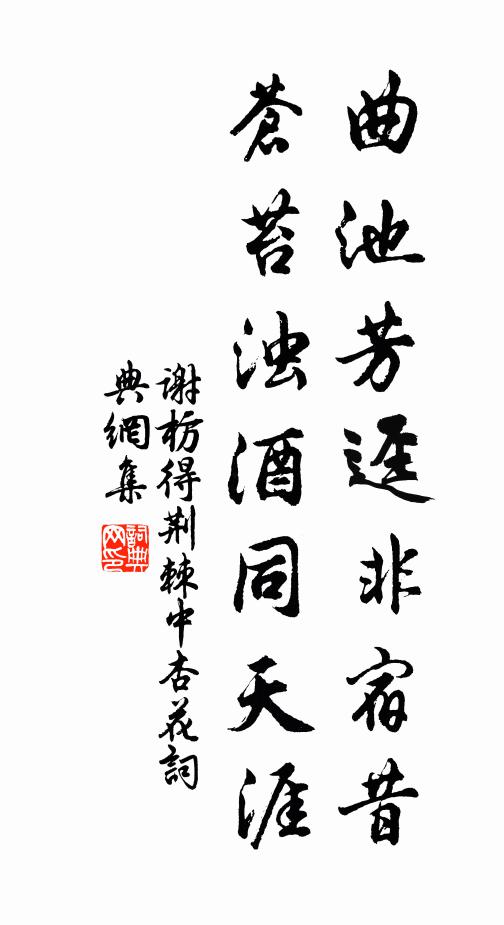 曲池芳逕非宿昔
蒼苔浊酒同天涯
谢枋得荆棘中杏花詞
典網集
詞典
网印